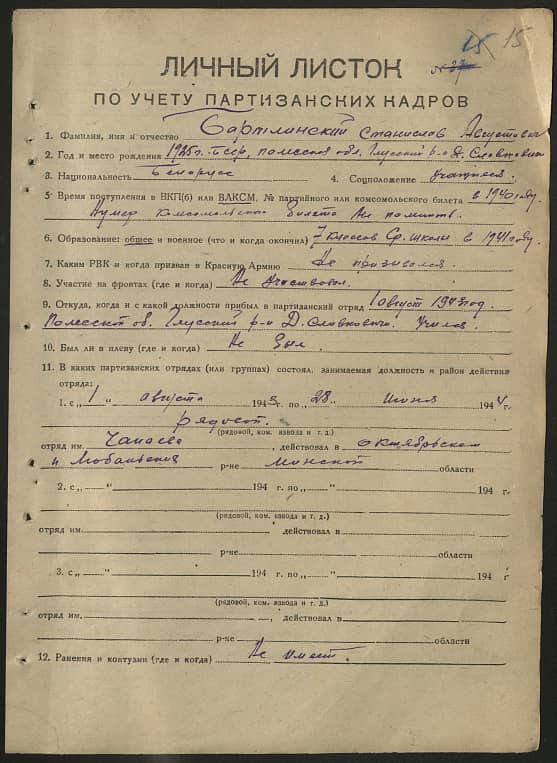 15 15
ЛИЧНЫЙ ЛИСТОК
ПО УЧЕТУ ПАРТИЗАНСКИХ КАДРОВ
1. Фамилия, имя и отчество Бартлинский Станислав Августович
2. Год и место рождения 1925г. БССР, Полесская обл. Глусский р-н Д. Славковичи
3. Национальность Белорус 4. Соцположение Учащиеся
5. Время поступления в ВКП(б) или ВЛКСМ, № партийного или комсомольского билета в 1940 году.
Нумер комсомольского билета не помнить.
6. Образование: общее и военное (что и когда окончил) 7 классов Ср. школы в 1941 году.
7. Каким РВК и когда призван в Красную Армию Не призывался
8. Участие на фронтах (где и когда) Не участвовал.
9. Откуда, когда и с какой должности прибыл в партизанский отряд 1 август 1943 год.
Полесской об. Глусский р-н Д. Славковичи. Учился
10. Был ли в плену (где и когда) Не был
11. В каких партизанских отрядах (или группах) состоял, занимаемая должность и район действия
отряда:
1. с „ 1 “ августа 1943 г. по „ 28 “ июня 1944 г.
рядовой.
(рядовой, ком. взвода и т. д.)
отряд им. Чапаева, действовал в Октябрьском
и Любаньском р-не Минской области
2. с „ “ 194 г. по „ “ 194 г.
(рядовой, ком. взвода и т. д.)
отряд им. действовал в
р-не области
3. с „ “ 194 г. по „ “ 194 г
(рядовой, ком. взвода и т. д.)
отряд им. , действовал в
р-не области
12. Ранения и контузии (где и когда) Не имеет.